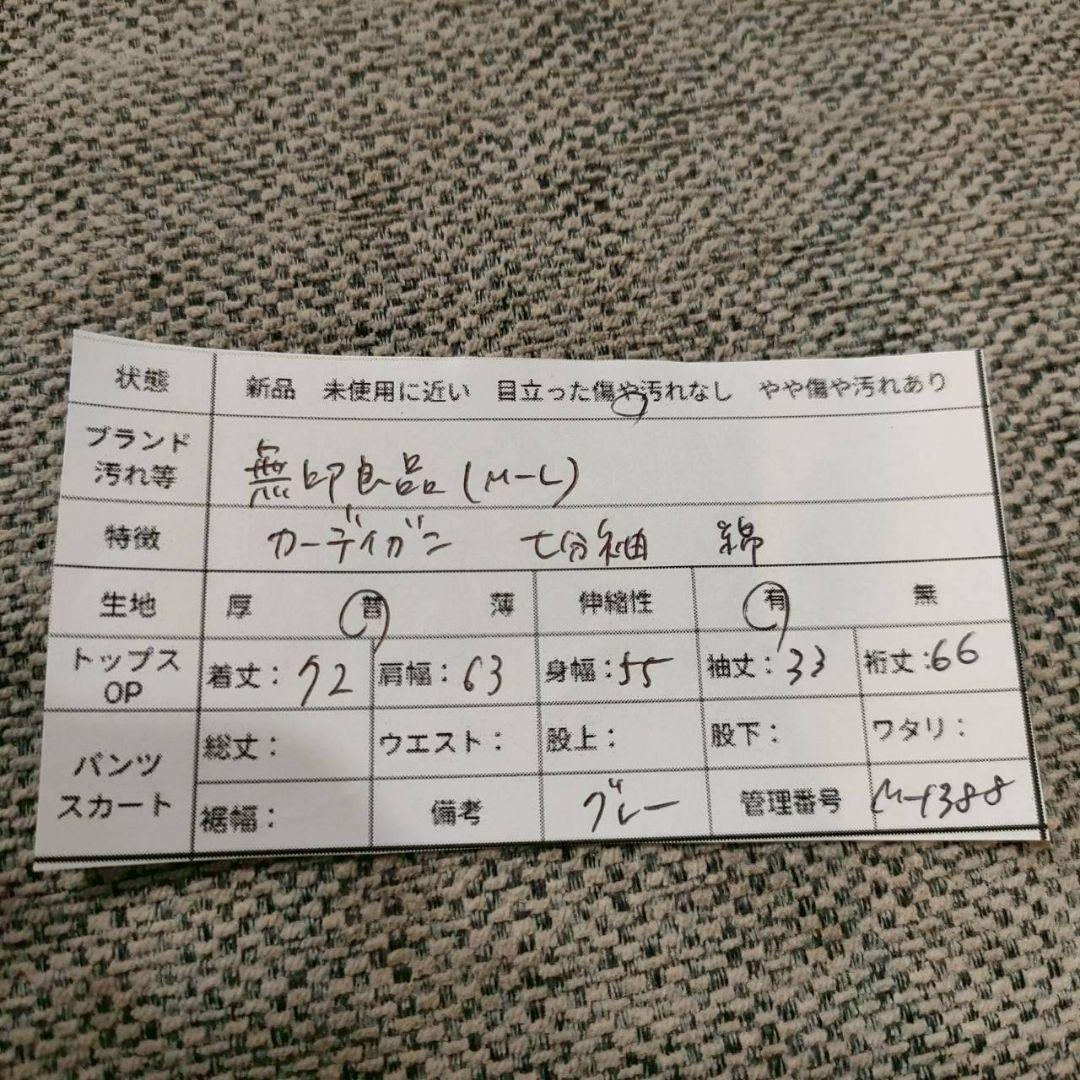 状態 新品 未使用に近い 目立った傷や汚れなし やや傷や汚れあり
ブランド
汚れ等 無印良品(M-L)
特徴 カーディガン 七分袖 綿
生地 厚 普 薄 伸縮性 有 無
トップス
OP 着丈:72 肩幅:63 身幅:55 袖丈:33 裄丈:66
パンツ
スカート 総丈: ウエスト: 股上: 股下: ワタリ:
裾幅: 備考 グレー 管理番号 M-1388